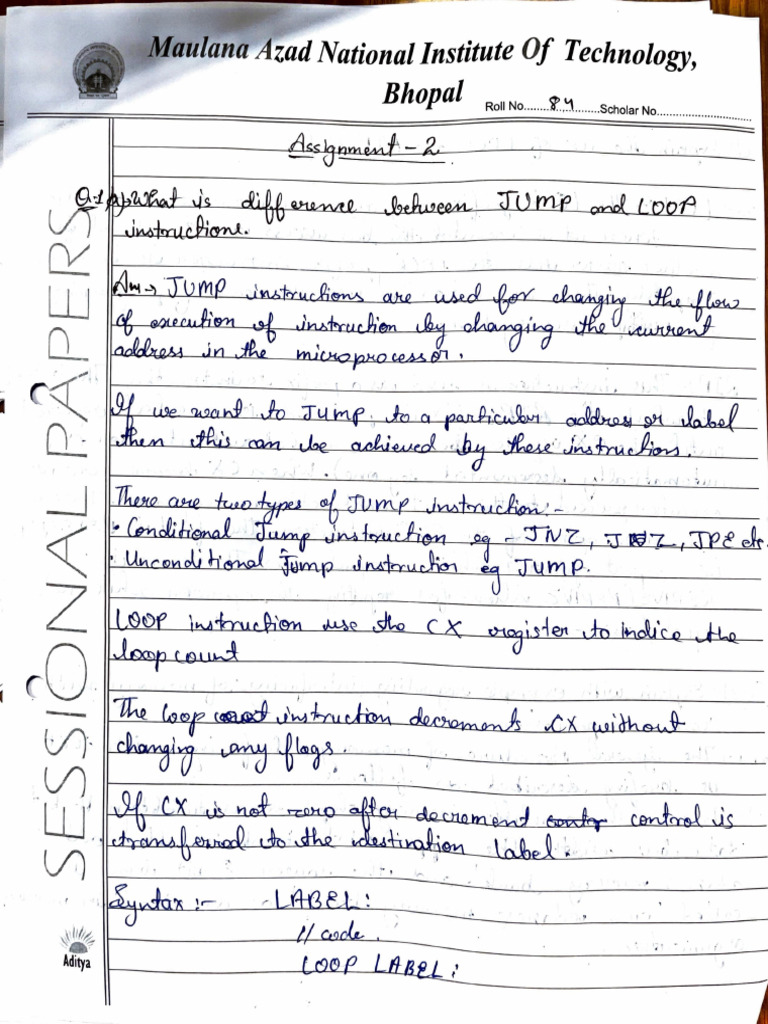 Maulana Azad National Institute Of Technology,
Bhopal
Roll No........84.......Scholar No............................
Assignment - 2
Q.1 (A) What is difference between JUMP and LOOP
instructions.
Ans → JUMP instructions are used for changing the flow
of execution of instruction by changing the current
address in the microprocessor.
If we want to JUMP to a particular address or label
then this can be achieved by these instructions.
There are two types of JUMP instruction:-
• Conditional Jump instruction eg - JNZ, JZ, JPE etc.
• Unconditional Jump instruction eg JUMP.
LOOP instruction use the CX register to indice the
loop count
The loop instruction decrements CX without
changing any flags.
If CX is not zero after decrement control is
transferred to the destination label.
Syntax :- LABEL:
// code.
LOOP LABEL:
SESSIONAL PAPERS
Aditya